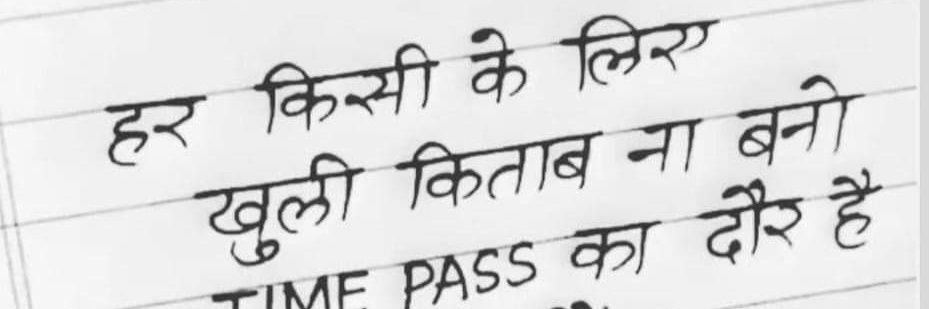 हर किसी के लिए
खुली किताब ना बनो
TIME PASS का दौर है